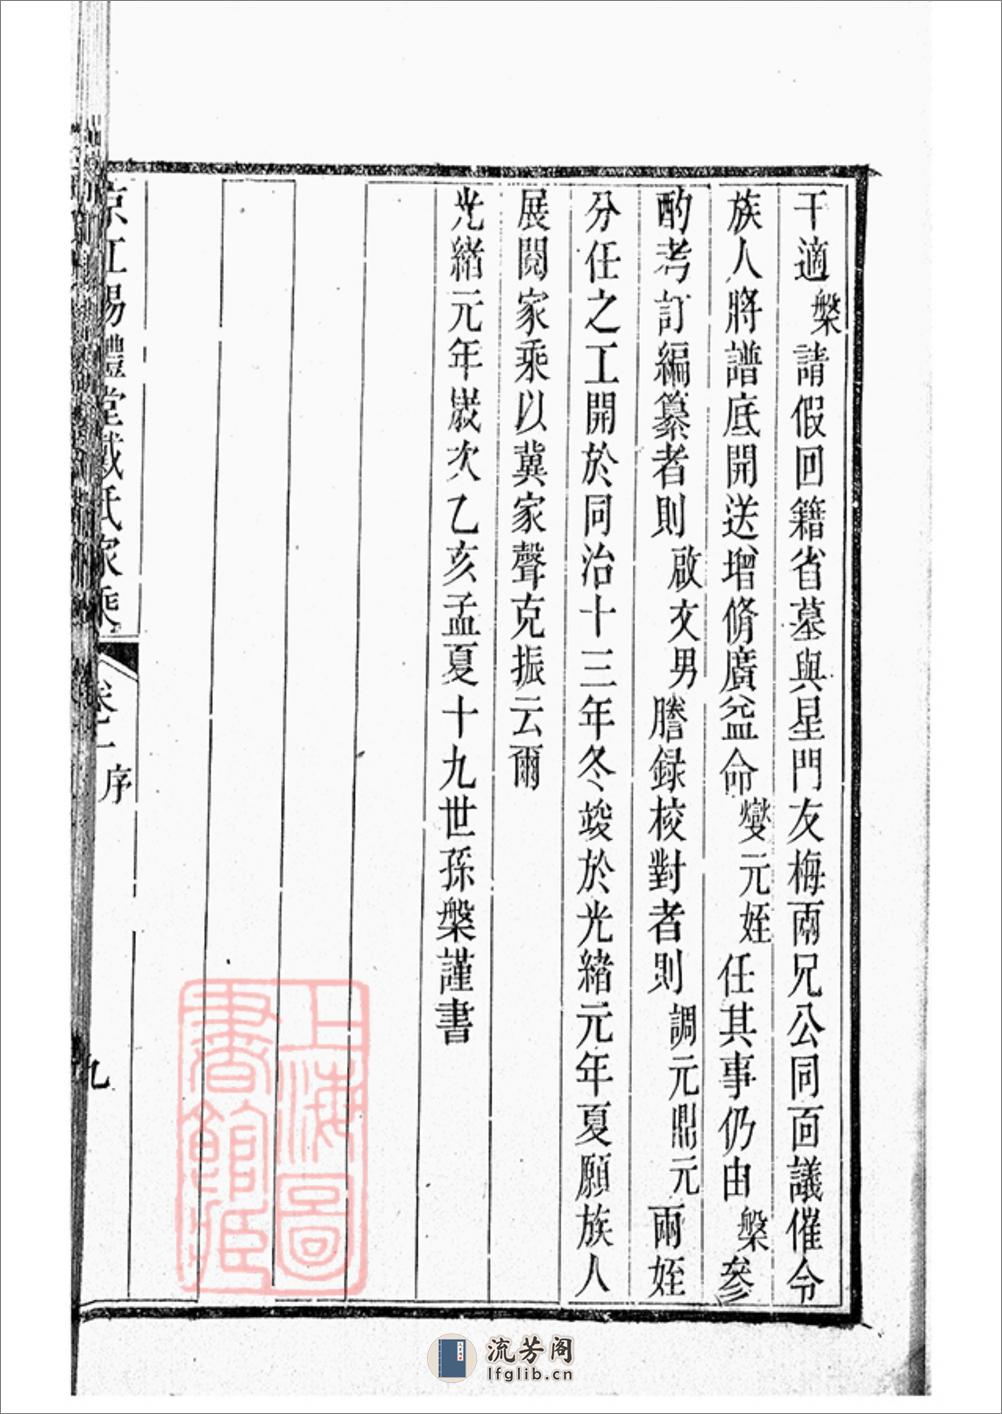 干適槃請假回籍省墓與星門友梅兩兄公同面議催令
族人將譜底開送增脩廣益命燮元姪任其事仍由槃參
酌考訂編纂者則啟文男謄録校對者則調元鼎元兩姪
分任之工開於同治十三年冬竣於光緒元年夏願族人
展閱家乘以冀家聲克振云爾
光緒元年歲次乙亥孟夏十九世孫槃謹書
京江錫禮堂戴氏家乘
卷一 序
九
上海圖書館藏
流芳阁
lfglib.cn